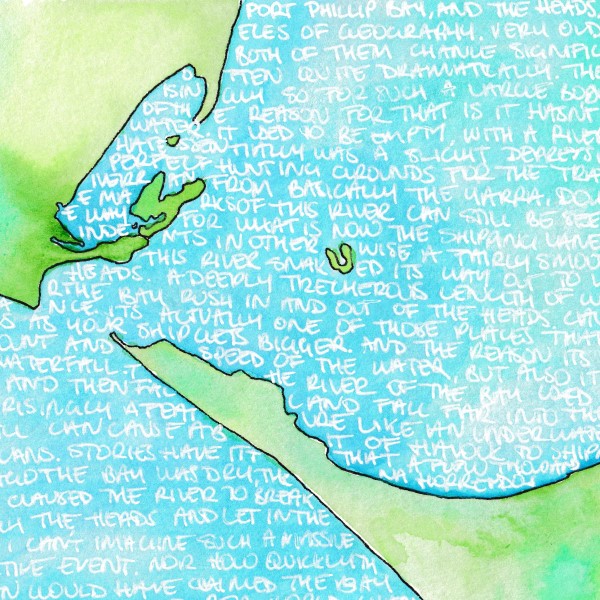 PORT PHILLIP BAY, AND THE HEADS,
ELES OF GEOGRAPHY. VERY OLD
BOTH OF THEM CHANGE SIGNIFIC
TEN QUITE DRAMATICALLY. THE
ISIN GLY SO FOR SUCH A LARGE BOD
OF TH E REASON FOR THAT IS IT HASNT
WATER. IT USED TO BE EMPTY, WITH A RIVER
THAT ESSENTIALLY WAS A SLIGHT DEPRESSI
PERFECT HUNTING GROUNDS FOR THE TRA
IVER RAN FROM BASICALLY THE YARRA, DO
E MA RKS OF THIS RIVER CAN STILL BE SEE
E WAY FOR WHAT IS NOW THE SHIPPING LANE
INDE NTS IN OTHER WISE A FAIRLY SMOO
THIS RIVER SNAK ED ITS WAY OUT TO
HEADS A DEEPLY TRECHEROUS LENGTH OF W
THE BAY RUSH IN AND OUT OF THE HEADS CAU
A NCE ITS ACTUALLY ONE OF THOSE PLACES THAT
S AS YOUR SHIP GETS BIGGER. AND THE REASON IS
OUNT AND SPEED OF THE WATER, BUT ALSO IT
WATERFALL T THE RIVER OF THE BAY USED
AND THEN FAL L AND FALL FAR INTO THE
RISINGLY A FEAT URE LIKE AN UNDERWA
LL CAN CAUSE A B IT OF HAVOUR TO SHIP
LANS. STORIES HAVE IT THAT A FEW THOUSAND
THE BAY WAS DRY, THE N A HORRENDOU
CAUSED THE RIVER TO BREAK
GH THE HEADS AND LET IN THE
I CAN'T IMAGINE SUCH A MASSIVE
TIVE EVENT. NOR HOW QUICKLY TH
N WOULD HAVE CLAIMED THE BAY